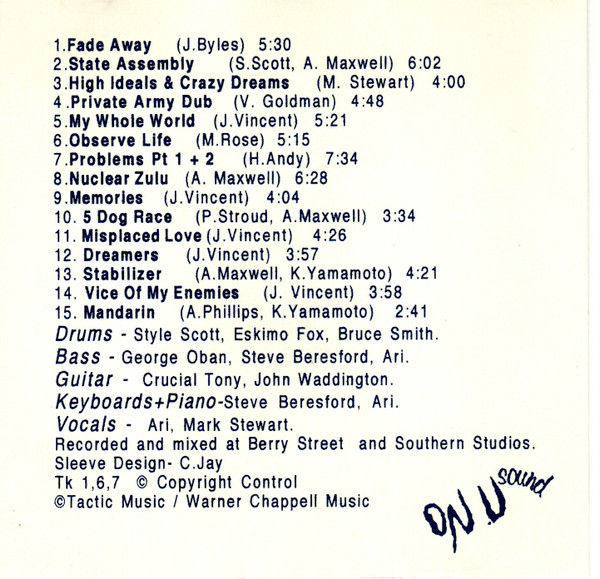 1.Fade Away (J.Byles) 5:30
2.State Assembly (S.Scott, A. Maxwell) 6:02
3.High Ideals & Crazy Dreams (M. Stewart) 4:00
4.Private Army Dub (V. Goldman) 4:48
5.My Whole World (J.Vincent) 5:21
6.Observe Life (M.Rose) 5:15
7.Problems Pt 1 + 2 (H.Andy) 7:34
8.Nuclear Zulu (A. Maxwell) 6:28
9.Memories (J.Vincent) 4:04
10. 5 Dog Race (P.Stroud, A.Maxwell) 3:34
11. Misplaced Love (J.Vincent) 4:26
12. Dreamers (J.Vincent) 3:57
13. Stabilizer (A.Maxwell, K.Yamamoto) 4:21
14. Vice Of My Enemies (J. Vincent) 3:58
15. Mandarin (A.Phillips, K.Yamamoto) 2:41
Drums - Style Scott, Eskimo Fox, Bruce Smith.
Bass - George Oban, Steve Beresford, Ari.
Guitar - Crucial Tony, John Waddington.
Keyboards+Piano-Steve Beresford, Ari.
Vocals - Ari, Mark Stewart.
Recorded and mixed at Berry Street and Southern Studios.
Sleeve Design- C.Jay
Tk 1,6,7 © Copyright Control
©Tactic Music / Warner Chappell Music
ON.U sound